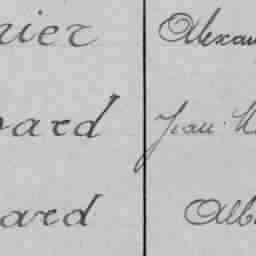 rier Alexan
ard Jean
ard Alb